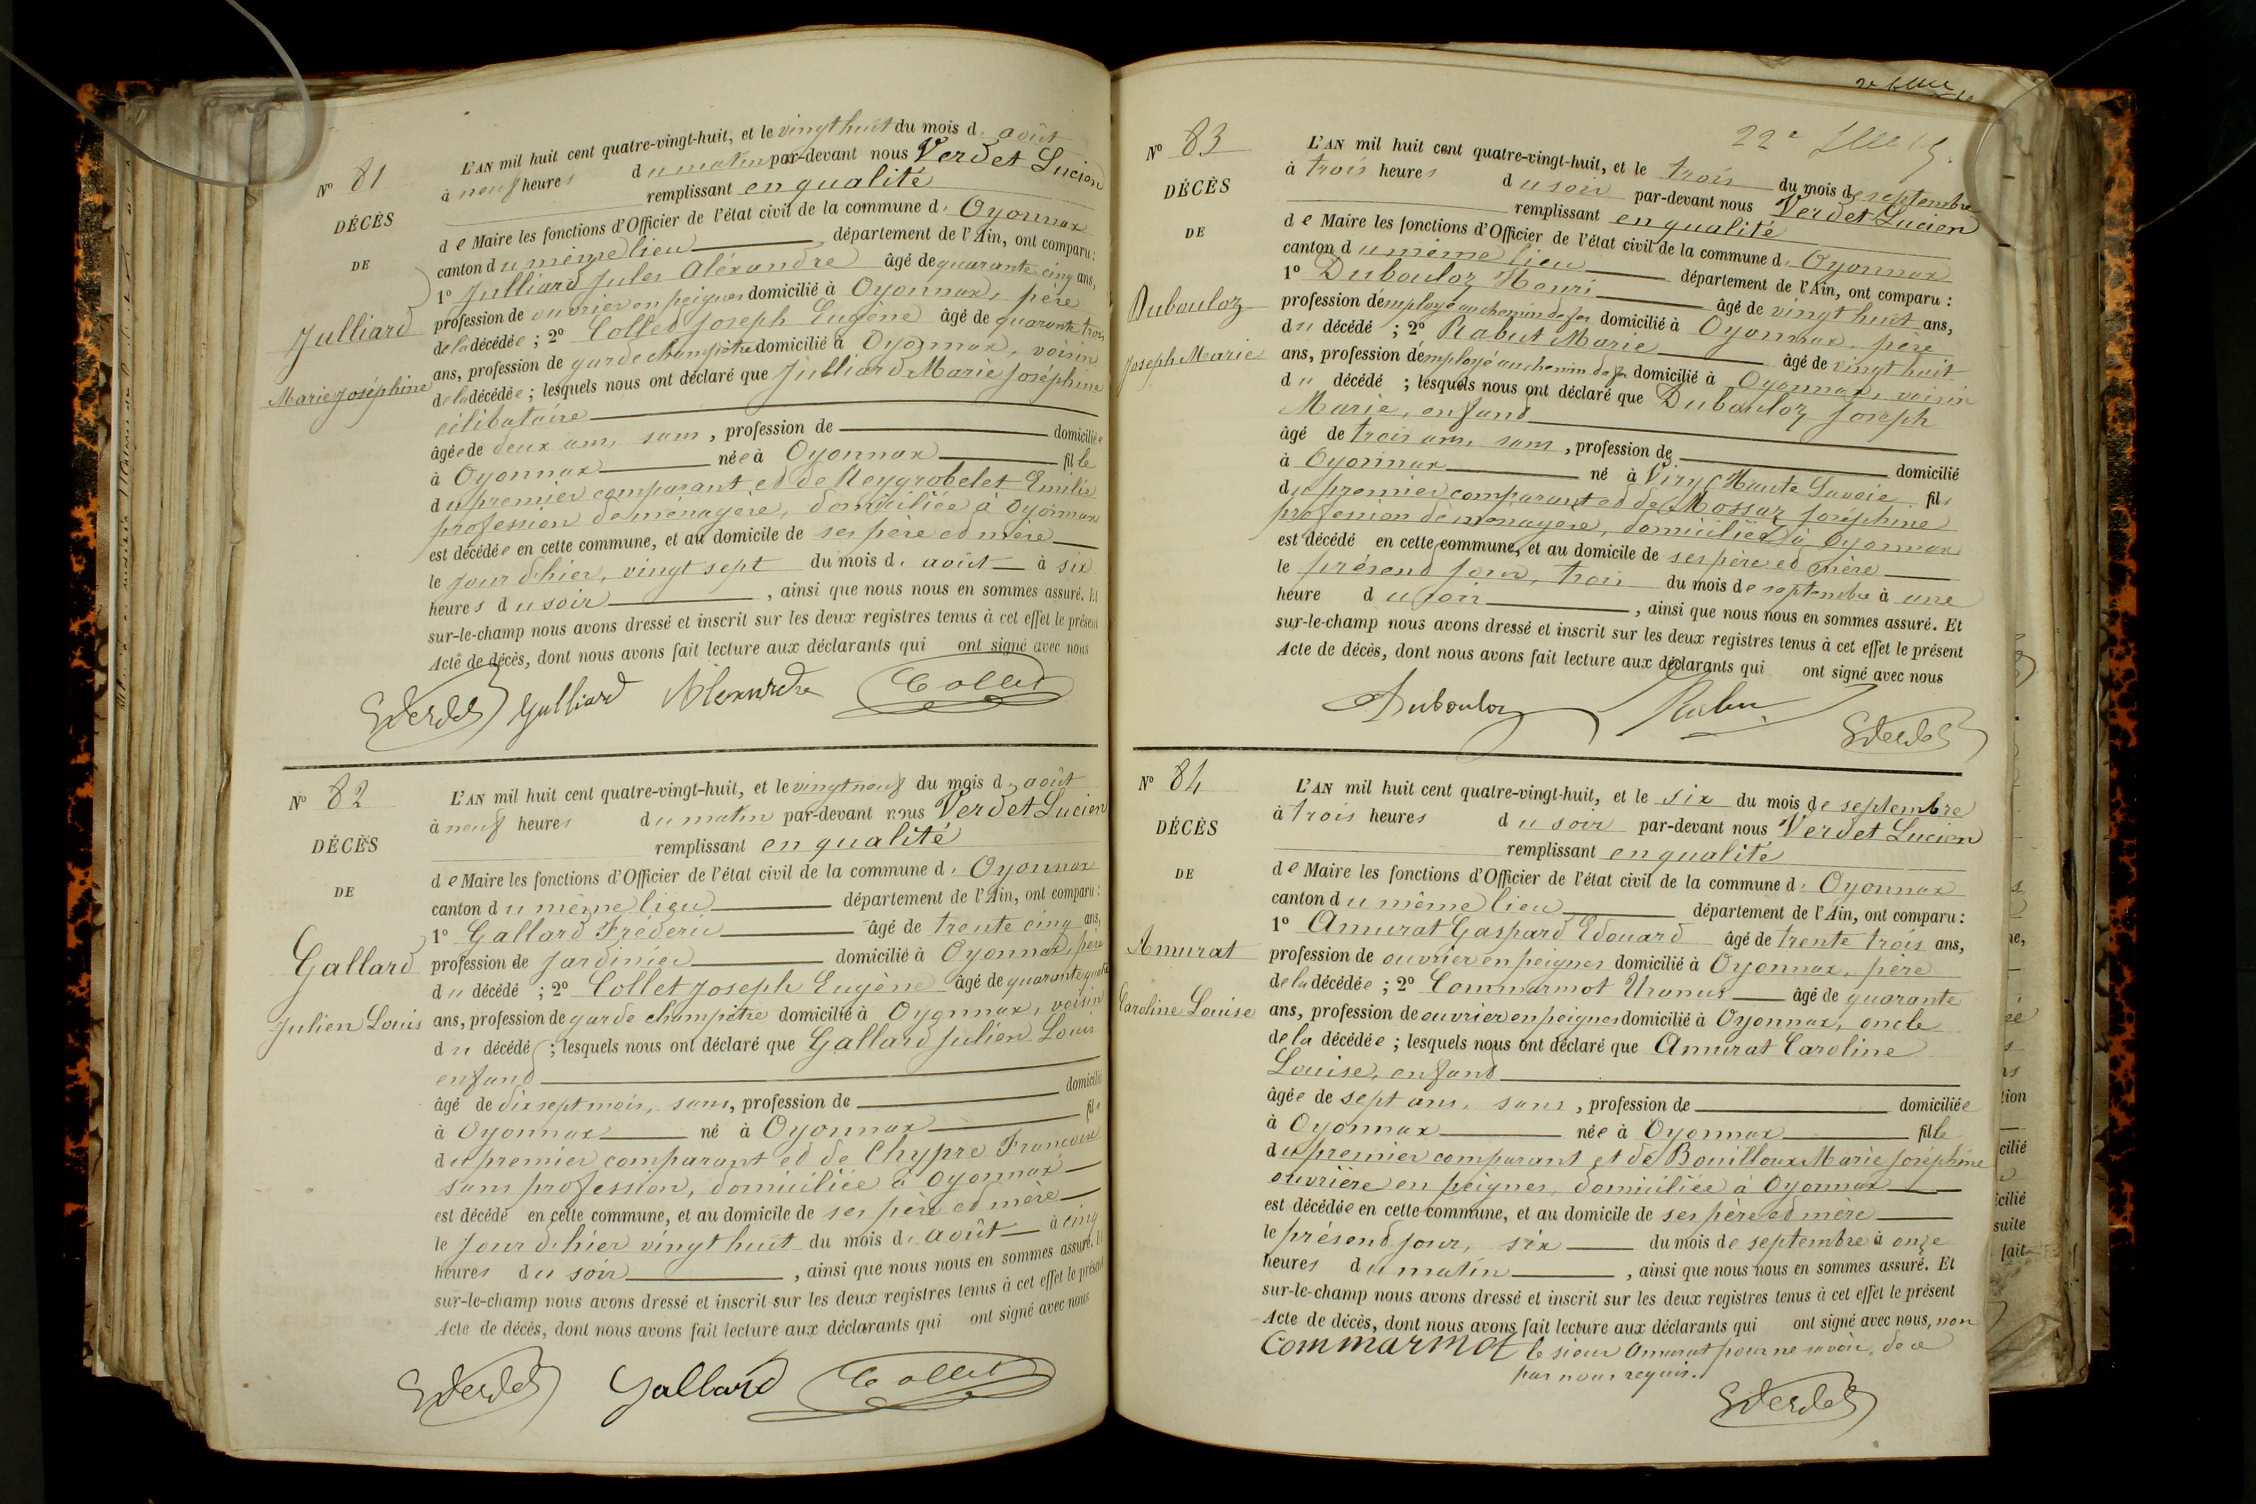 N° 81
DÉCÈS
DE
Julliard
Marie Joséphine
L'AN mil huit cent quatre-vingt-huit, et le vingt huit du mois d. août
à neuf heures du matin par-devant nous Verdet Lucien
remplissant en qualité
de Maire les fonctions d'Officier de l'état civil de la commune d. Oyonnax
canton du même lieu département de l'Ain, ont comparu:
1° Julliard Jules Aléxandre âgé de quarante cinq ans,
profession de ouvrier en peignes domicilié à Oyonnax, père
de la décédée; 2° Collet Joseph Eugène âgé de quarante trois
ans, profession de garde champêtre domicilié à Oyonnax, voisin
de la décédée; lesquels nous ont déclaré que Julliard Marie Joséphine
célibataire
âgée de deux ans, sans, profession de domiciliée
à Oyonnax née à Oyonnax fille
du premier comparant et de Neygrobelet Emilie
profession de ménagère, domiciliée à Oyonnax
est décédée en cette commune, et au domicile de ses père et mère
le jour d'hier, vingt sept du mois d. août à six
heures du soir, ainsi que nous nous en sommes assuré. Et
sur-le-champ nous avons dressé et inscrit sur les deux registres tenus à cet effet le présent
Acte de décès, dont nous avons fait lecture aux déclarants qui ont signé avec nous
LVerdet Julliard Alexandre Collet
N° 82
DÉCÈS
DE
Gallard
Julien Louis
L'AN mil huit cent quatre-vingt-huit, et le vingt neuf du mois d. août
à neuf heures du matin par-devant nous Verdet Lucien
remplissant en qualité
de Maire les fonctions d'Officier de l'état civil de la commune d. Oyonnax
canton du même lieu département de l'Ain, ont comparu:
1° Gallard Fréderic âgé de trente cinq ans,
profession de jardinier domicilié à Oyonnax, père
du décédé; 2° Collet Joseph Eugène âgé de quarante quatre
ans, profession de garde champêtre domicilié à Oyonnax, voisin
du décédé; lesquels nous ont déclaré que Gallard Julien Louis
enfant
âgé de dix sept mois, sans, profession de domicilié
à Oyonnax né à Oyonnax fils
du premier comparant et de Chypre Françoise
sans profession, domiciliée à Oyonnax
est décédé en cette commune, et au domicile de ses père et mère
le jour d'hier vingt huit du mois d. août à cinq
heures du soir, ainsi que nous nous en sommes assuré. Et
sur-le-champ nous avons dressé et inscrit sur les deux registres tenus à cet effet le présent
Acte de décès, dont nous avons fait lecture aux déclarants qui ont signé avec nous
LVerdet Gallard Collet
22e
N° 83
DÉCÈS
DE
Dubouloz
Joseph Marie
L'AN mil huit cent quatre-vingt-huit, et le trois du mois de septembre
à trois heures du soir par-devant nous Verdet Lucien
remplissant en qualité
de Maire les fonctions d'Officier de l'état civil de la commune d. Oyonnax
canton du même lieu département de l'Ain, ont comparu:
1° Dubouloz Henri âgé de vingt huit ans,
profession d'employé au chemin de fer domicilié à Oyonnax, père
du décédé; 2° Rabut Marie âgé de vingt huit
ans, profession d'employé au chemin de fer domicilié à Oyonnax, voisin
du décédé; lesquels nous ont déclaré que Dubouloz Joseph
Marie, enfant
âgé de trois ans, sans, profession de domicilié
à Oyonnax né à Viry, Haute Savoie fils
du premier comparant et de Mossuz Joséphine
profession de ménagère, domiciliée à Oyonnax
est décédé en cette commune, et au domicile de ses père et mère
le présent jour, trois du mois de septembre à une
heure du soir, ainsi que nous nous en sommes assuré. Et
sur-le-champ nous avons dressé et inscrit sur les deux registres tenus à cet effet le présent
Acte de décès, dont nous avons fait lecture aux déclarants qui ont signé avec nous
Dubouloz Rabu LVerdet
N° 84
DÉCÈS
DE
Amurat
Caroline Louise
L'AN mil huit cent quatre-vingt-huit, et le six du mois de septembre
à trois heures du soir par-devant nous Verdet Lucien
remplissant en qualité
de Maire les fonctions d'Officier de l'état civil de la commune d. Oyonnax
canton du même lieu département de l'Ain, ont comparu:
1° Amurat Gaspard Edouard âgé de trente trois ans,
profession de ouvrier en peignes domicilié à Oyonnax, père
de la décédée; 2° Commarmot Uranus âgé de quarante
ans, profession de ouvrier en peignes domicilié à Oyonnax, oncle
de la décédée; lesquels nous ont déclaré que Amurat Caroline
Louise, enfant
âgée de sept ans, sans, profession de domiciliée
à Oyonnax née à Oyonnax fille
du premier comparant et de Bouilloux Marie Joséphine
ouvrière en peignes, domiciliée à Oyonnax
est décédée en cette commune, et au domicile de ses père et mère
le présent jour, six du mois de septembre à onze
heures du matin, ainsi que nous nous en sommes assuré. Et
sur-le-champ nous avons dressé et inscrit sur les deux registres tenus à cet effet le présent
Acte de décès, dont nous avons fait lecture aux déclarants qui ont signé avec nous, non
Commarmot le sieur Amurat pour ne savoir, de ce
par nous requis.
LVerdet